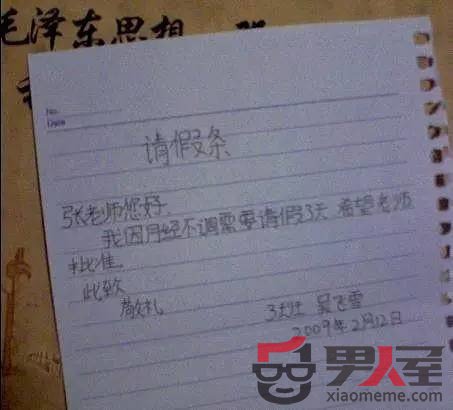 毛泽东思想
No.
Date
请假条
张老师您好.
我因月经不调需要请假3天 希望老师
批准.
此致
敬礼
3班 吴飞雪
2009年2月12日
男人屋
xiaomeme.com